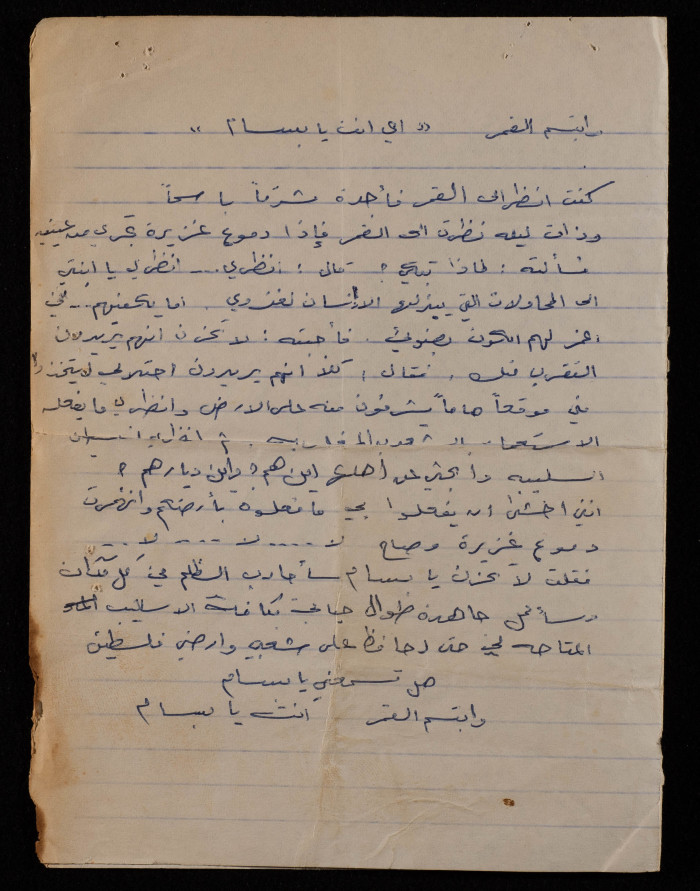 وابتسم القمر « اين انت يا بسام »
كنت انظر الى القمر فأجده مشرقاً باسماً
وذات ليله نظرت الى القمر فإذا دموع غزيرة تجري من عينيه
فسألته : لماذا تبكي ؟ قال : انظري ... انظري يا ابنتي
الى المحاولات التي يبذلها الانسان لغزوي . اما يكفيهم ...
لهم الكون بضوئي . فأجبته : لا تحزن انهم يريدون
التقرب منك . فقال : كلا انهم يريدون احتلالي ليتخذوا
مني موقعاً هاماً يشرفون منه على الارض وانظري ما يفعله
الاستعمار ثم انظري
السليبه وابحثي عن أهلها اين هم ؟ واين ديارهم ؟
انني اخشى ان يفعلوا بي ما فعلوه بأرضكم وانهمرت
دموع غزيرة وصاح لا .... لا .... لا ...
فقلت لا تحزن يا بسام سأحارب الظلم في كل مكان
وسأعمل جاهدة طوال حياتي بكافة الاساليب
المتاحه لي حتى احافظ على شعبي وارضي فلسطين
هل تسمعني يا بسام
وابتسم القمر انت يا بسام